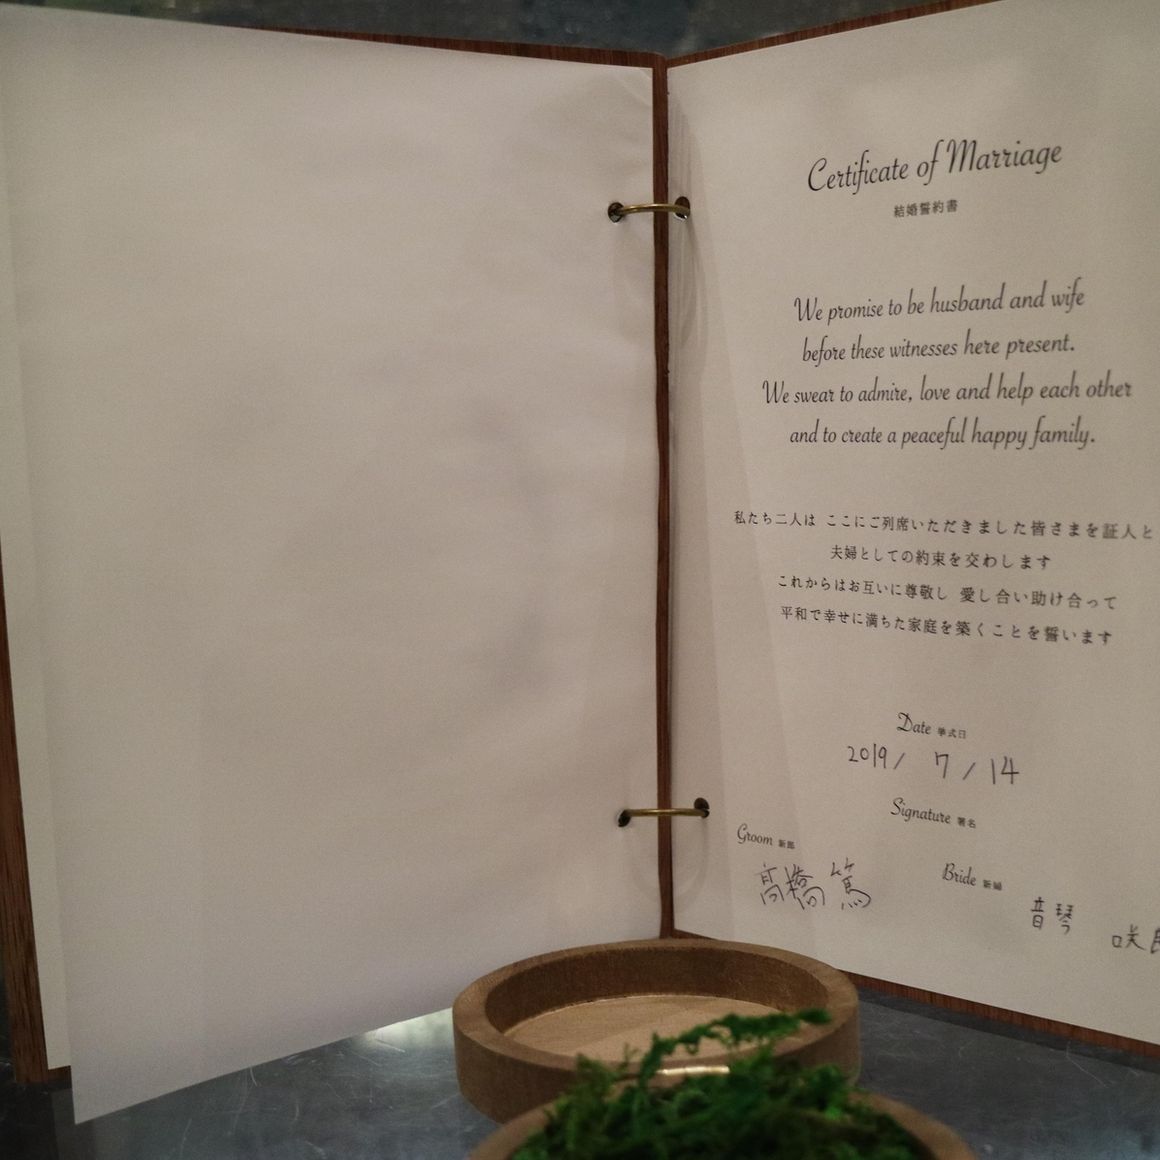 Certificate of Marriage
結婚誓約書
We promise to be husband and wife
before these witnesses here present.
We swear to admire, love and help each other
and to create a peaceful happy family.
私たち二人は ここにご列席いただきました皆さまを証人と
夫婦としての約束を交わします
これからはお互いに尊敬し 愛し合い助け合って
平和で幸せに満ちた家庭を築くことを誓います
Date 挙式日
2019/ 7/14
Signature 署名
Groom 新郎
髙橋 篤
Bride 新婦
音琴 咲